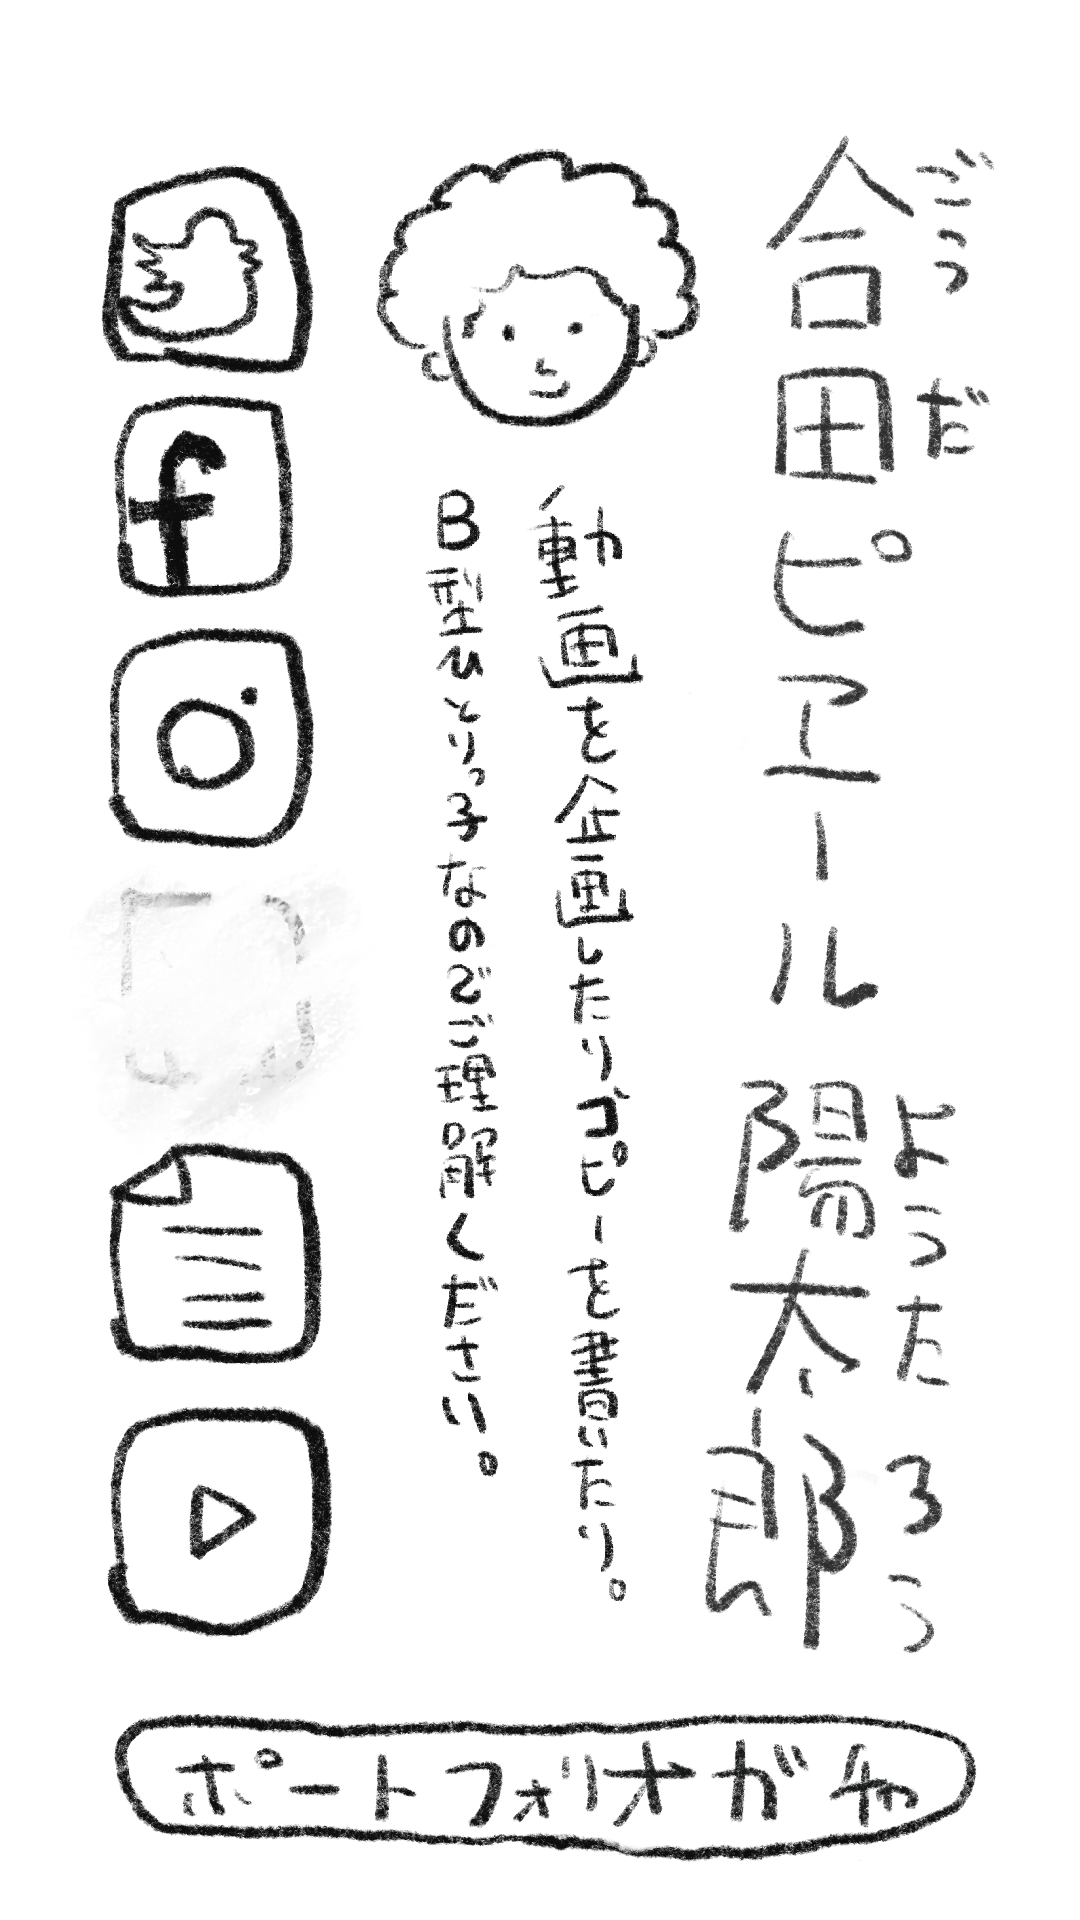 ごうだ
合田ピエール
ようたろう
陽太郎
動画を企画したりコピーを書いたり。
B型ひとりっ子なのでご理解ください。
f
ポートフォリオガチャ